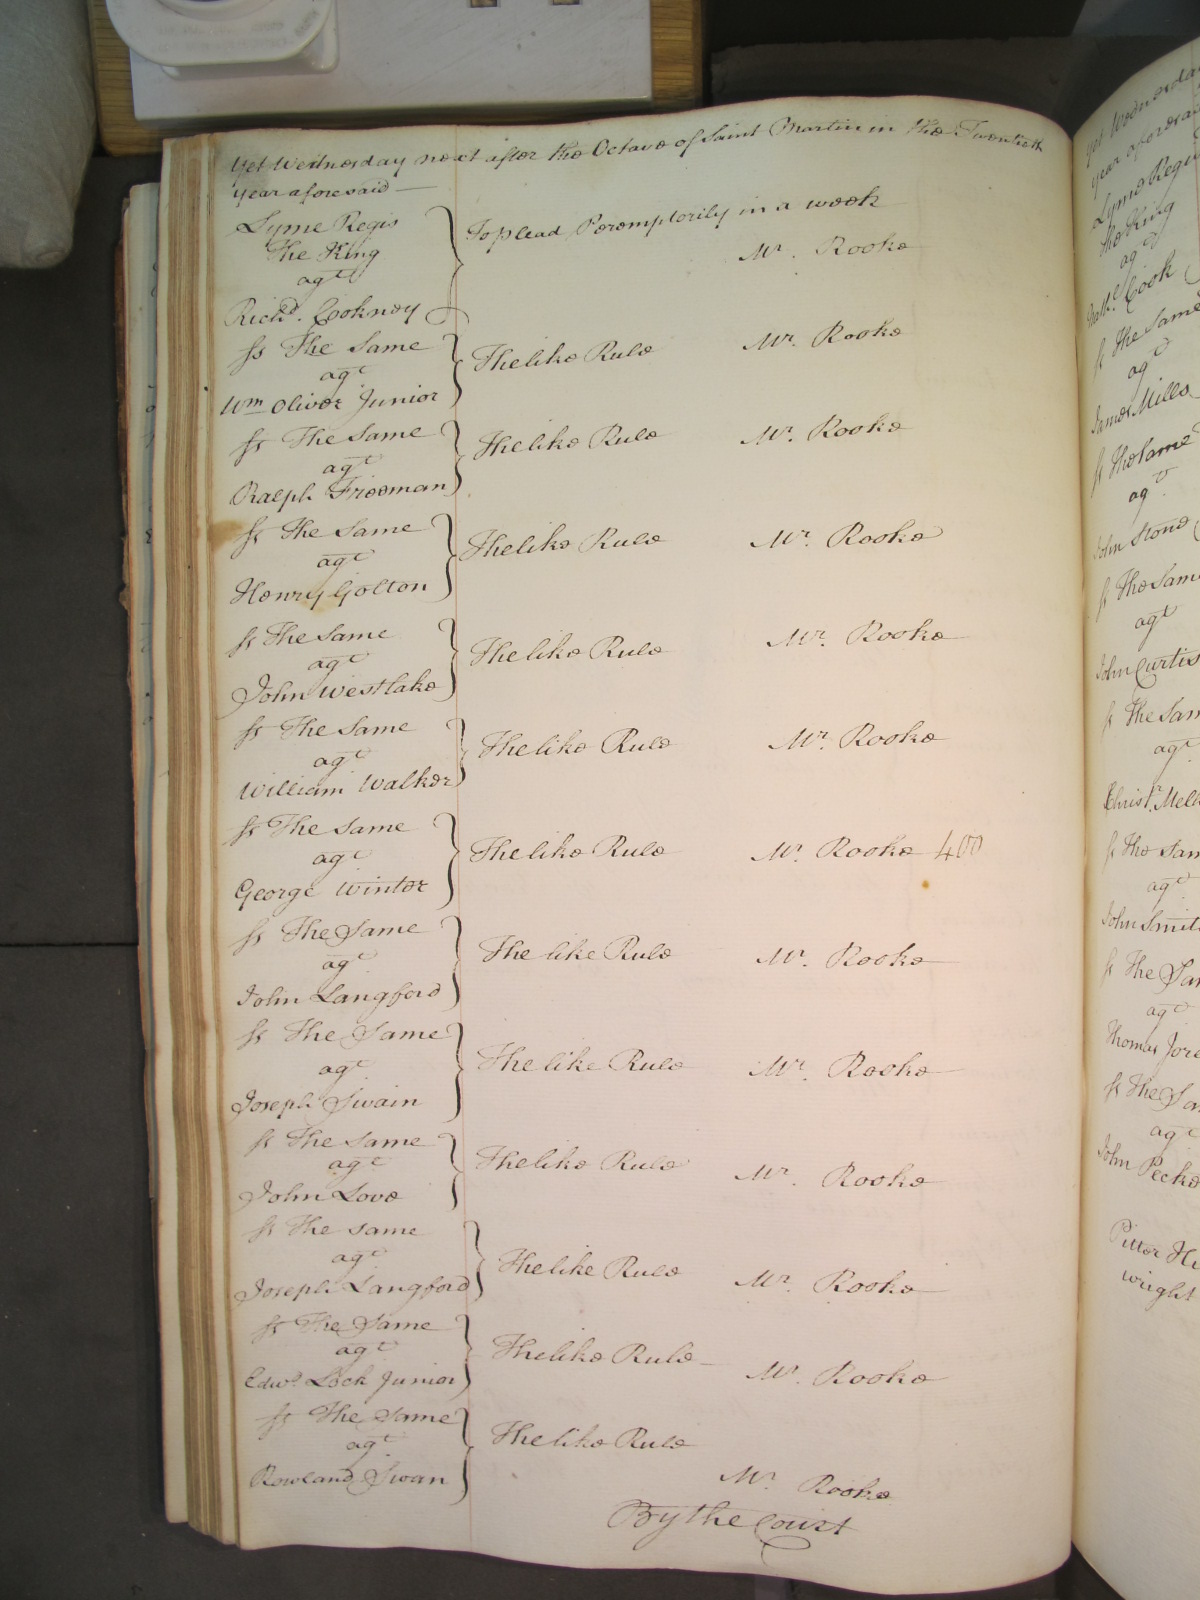 Yet Wednesday next after the Octave of Saint Martin in the Twentieth
year aforesaid —
Lyme Regis
The King
agt
Richd. Cookney
To plead Peremptorily in a week
Mr. Rooke
ss The Same
agt
Wm Oliver Junior
The like Rule Mr. Rooke
ss The Same
agt
Ralph Freeman
The like Rule Mr. Rooke
ss The Same
agt
Henry Golton
The like Rule Mr. Rooke
ss The Same
agt
John Westlake
The like Rule Mr. Rooke
ss The Same
agt
William Walker
The like Rule Mr. Rooke
ss The Same
agt
George Winter
The like Rule Mr. Rooke 400
ss The Same
agt
John Langford
The like Rule Mr. Rooke
ss The Same
agt
Joseph Swain
The like Rule Mr. Rooke
ss The Same
agt
John Love
The like Rule Mr. Rooke
ss The Same
agt
Joseph Langford
The like Rule Mr. Rooke
ss The Same
agt
Edwd. Lock Junior
The like Rule Mr. Rooke
ss The Same
agt
Rowland Swan
The like Rule
Mr. Rooke
By the Court
Yet Wednesday
year aforesaid
Lyme Regis
The King
agt
Cook
ss The Same
agt
James Mills
ss The Same
agt
John Stone
ss The Same
agt
John Curtis
ss The Sam
agt
Christr. Melh
ss The Sam
agt
John Smith
ss The Sam
agt
Thomas Jord
ss The Sa
agt
John Pecke
wright